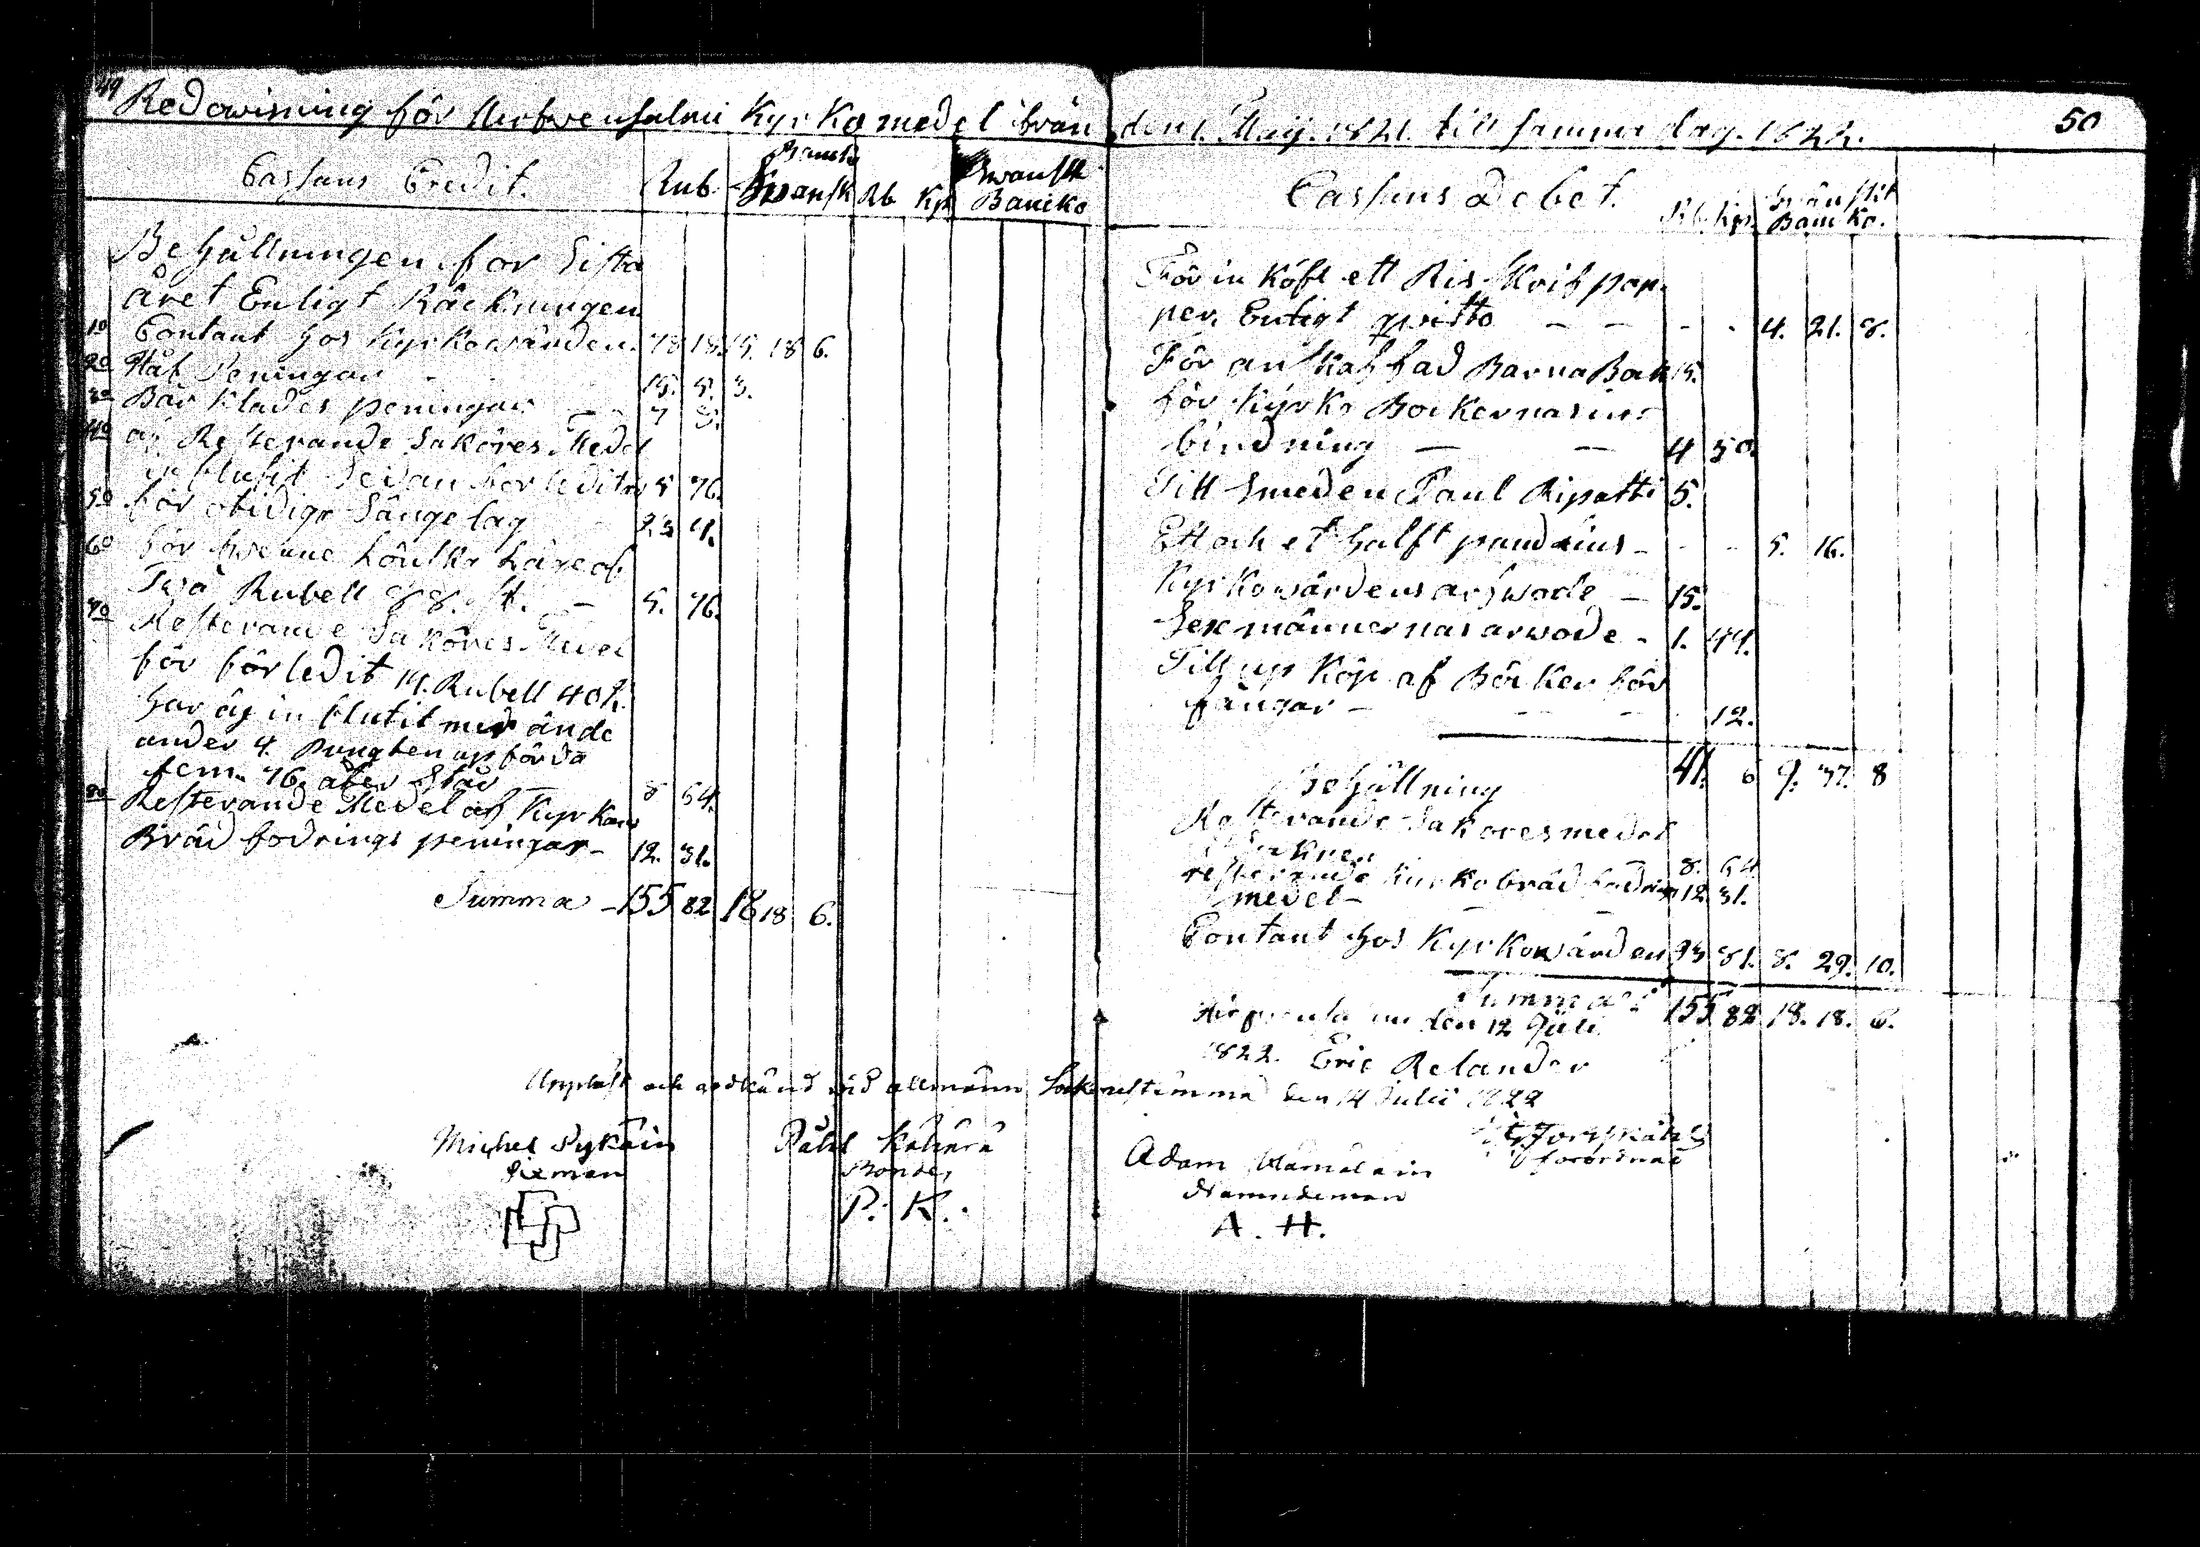 49
Redowisning för Kyrko medel ifrån den 1. Maij. 1821. till samma dag. 1822.
50
Cassans Credit.
Rub
Svansk
Rb Kp
Svansk
Bancko
Behållningen för Sista
året Enligt Räckningen
10 Contant hos Kyrkowärden. 78 18. 15. 18 6.
20 Håf Peningar 15. 5. 3.
30 Bår Klädes peningar 7
40 af Resterande Saköres Medel
influtit Sedan förledit år 5 76.
50 för otidige Sängelag 23 4.
60 för twenne
Twå Rubell 88. St. — 5. 76.
70 Resterande Saköres Medel
för förledit 14. Rubell 40 k.
har äj in flutit mer än de
under 4. Pungten upförda
fem. 76. åter Står 8 64.
80 Resterande Medel af Kyrkans
Bräd fodrings peningar - 12. 31.
Summa - 155 82 18 18 6.
Cassans Debet.
Rb. Kp. Svänskt
Bancko.
För in köft ett Ris Skrif pap-
per, Enligt qvitto — — - - 4. 21. 8.
För anskaffad Barna Bok 15.
för Kyrko Bockernas in-
bindning — — 4 50.
Till Smeden Paul Ripatti 5.
Ett och et halft pund - - - 5. 16.
Kyrkowärdens arfwode — 15.
Sexmännernas arwode - 1. 44.
Till up Köp af Böcker för
fångar — - - 12.
41. 6 9. 37. 8
Behållning
Resterande Sakoresmedel
8. 64
resterande Kyrko bräd fodrings
medel - - - 12. 31.
Contant hos Kyrkowärden 93 81. 8. 29. 10.
Summa 155 82 18. 18. 6.
den 12 Juli
1822. Eric Relander
Uppläst och godkänd vid allmänn Sockenstämma den 14 Julii 1822
Michel Pykäin
Sixman
Påhl
Bonde,
P. K.
Adam Hämäläin
Nämndeman
A. H.